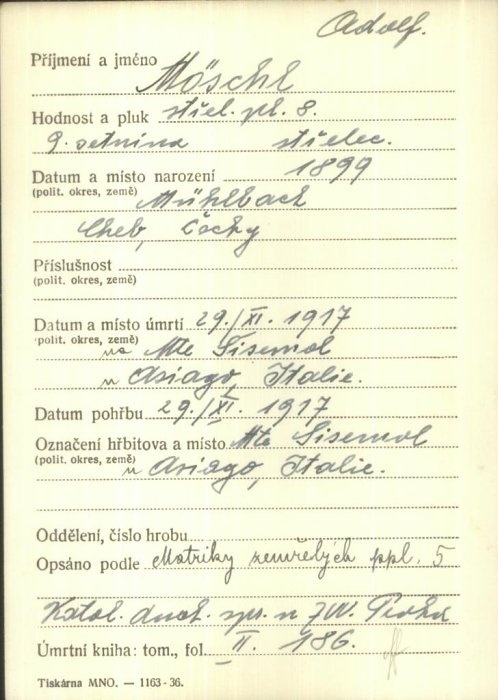 Adolf.
Příjmení a jméno Möschl
Hodnost a pluk střel. pl. 8.
9. setnina střelec.
Datum a místo narození 1899
(polit. okres, země) Mühlbach
Cheb, Čechy
Příslušnost
(polit. okres, země)
Datum a místo úmrtí 29./XI. 1917
(polit. okres, země) na Mte Sisemol
u Asiago, Italie.
Datum pohřbu 29./XI. 1917
Označení hřbitova a místo Mte Sisemol
(polit. okres, země) u Asiago, Italie.
Oddělení, číslo hrobu
Opsáno podle Matriky zemřelých ppl. 5
Katol. duch. spr. u Praha
Úmrtní kniha: tom., fol. II. 186.
Tiskárna MNO. — 1163-36.